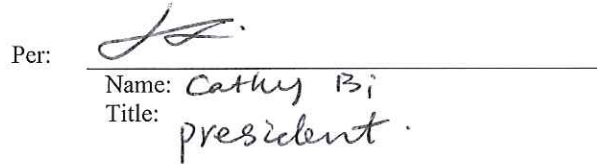 Per:
Name: Cathy Bi
Title: president.